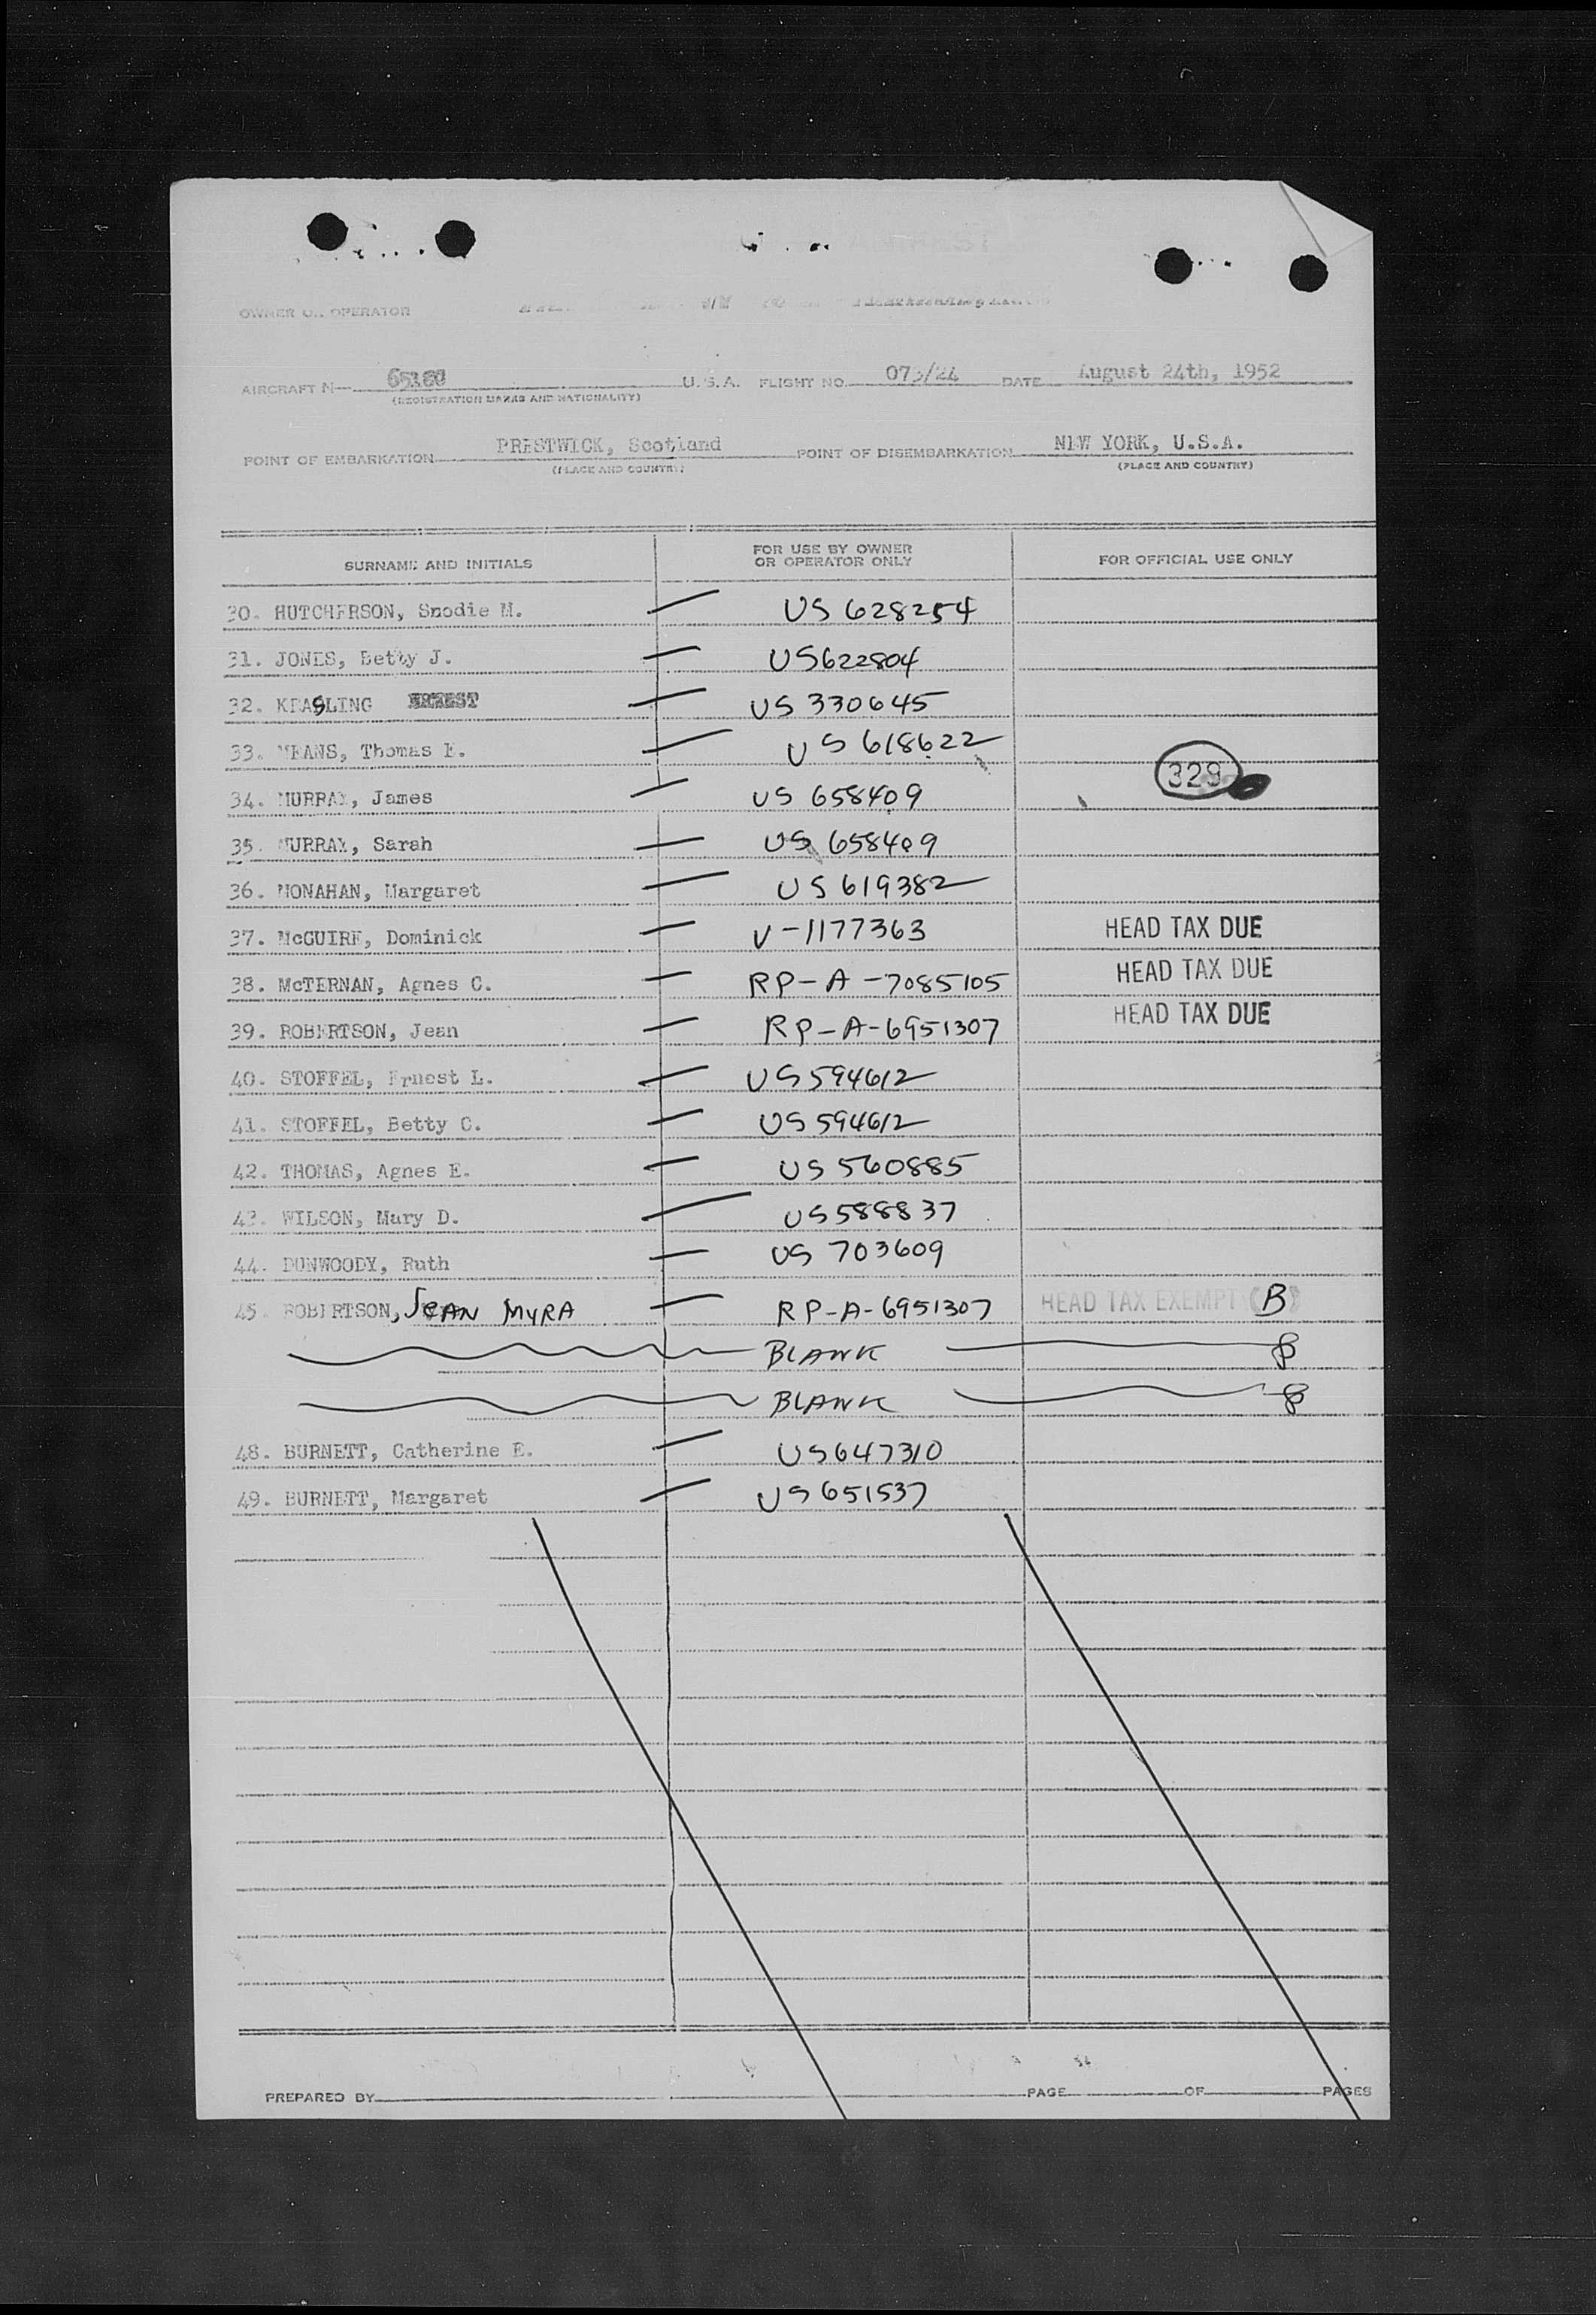 OWNER OR OPERATOR
AIRCRAFT N 65160 U.S.A. FLIGHT NO. 073/24 DATE August 24th, 1952
(REGISTRATION MARKS AND NATIONALITY)
POINT OF EMBARKATION PRESTWICK, Scotland POINT OF DISEMBARKATION NEW YORK, U.S.A.
(PLACE AND COUNTRY) (PLACE AND COUNTRY)
SURNAME AND INITIALS FOR USE BY OWNER OR OPERATOR ONLY FOR OFFICIAL USE ONLY
30. HUTCHERSON, Snodie M. US 628254
31. JONES, Betty J. US622804
32. KEASLING ERNEST US 330645
33. MEANS, Thomas E. US 618622
329
34. MURRAY, James US 658409
35. MURRAY, Sarah US 658409
36. MONAHAN, Margaret US 619382
37. McGUIRE, Dominick V-1177363 HEAD TAX DUE
38. McTERNAN, Agnes C. RP-A-7085105 HEAD TAX DUE
39. ROBERTSON, Jean RP-A-6951307 HEAD TAX DUE
40. STOFFEL, Ernest L. US594612
41. STOFFEL, Betty C. US 594612
42. THOMAS, Agnes E. US 560885
43. WILSON, Mary D. US588837
44. DUNWOODY, Ruth US 703609
45. ROBERTSON, JEAN MYRA RP-A-6951307 HEAD TAX EXEMPT (B)
BLANK
BLANK
48. BURNETT, Catherine E. US647310
49. BURNETT, Margaret US 651537
PREPARED BY PAGE OF PAGES